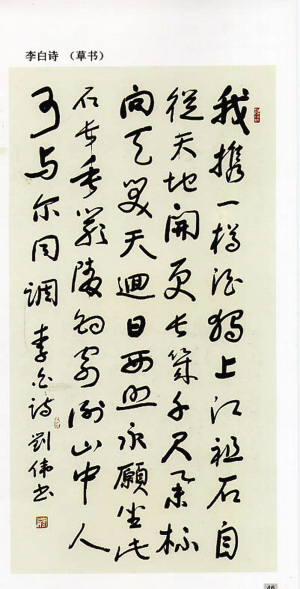 李白诗 （草书）
我携一樽酒獨上江祖石自
從天地開更长幾千尺举杯
向天笑天迴日西照永願坐此
石长垂嚴陵钓寄谢山中人
可与尔同調 李白诗 劉伟书